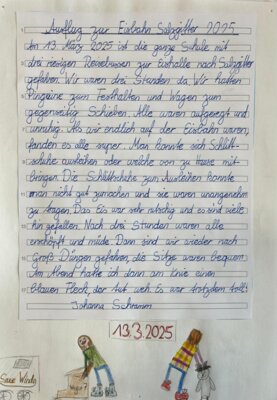 Ausflug zur Eisbahn Salzgitter 2025
Am 13. März 2025 ist die ganze Schule mit
drei riesigen Reisebussen zur Eishalle nach Salzgitter
gefahren. Wir waren drei Stunden da. Wir hatten
Pinguine zum Festhalten und Wagen zum
gegenseitig Schieben. Alle waren aufgeregt und
unruhig. Als wir endlich auf der Eisbahn waren,
fanden es alle super. Man konnte sich Schlitt-
schuhe ausleihen oder welche von zu Hause mit-
bringen. Die Schlittschuhe zum Ausleihen konnte
man nicht gut zumachen und sie waren unangenehm
zu tragen. Das Eis war sehr rutschig und es sind viele
hin gefallen. Nach drei Stunden waren alle
erschöpft und müde. Dann sind wir wieder nach
Groß Düngen gefahren, die Sitze waren bequem.
Am Abend hatte ich dann am Knie einen
blauen Fleck, der tut weh. Es war trotzdem toll!
Johanna Schramm
13.3.2025